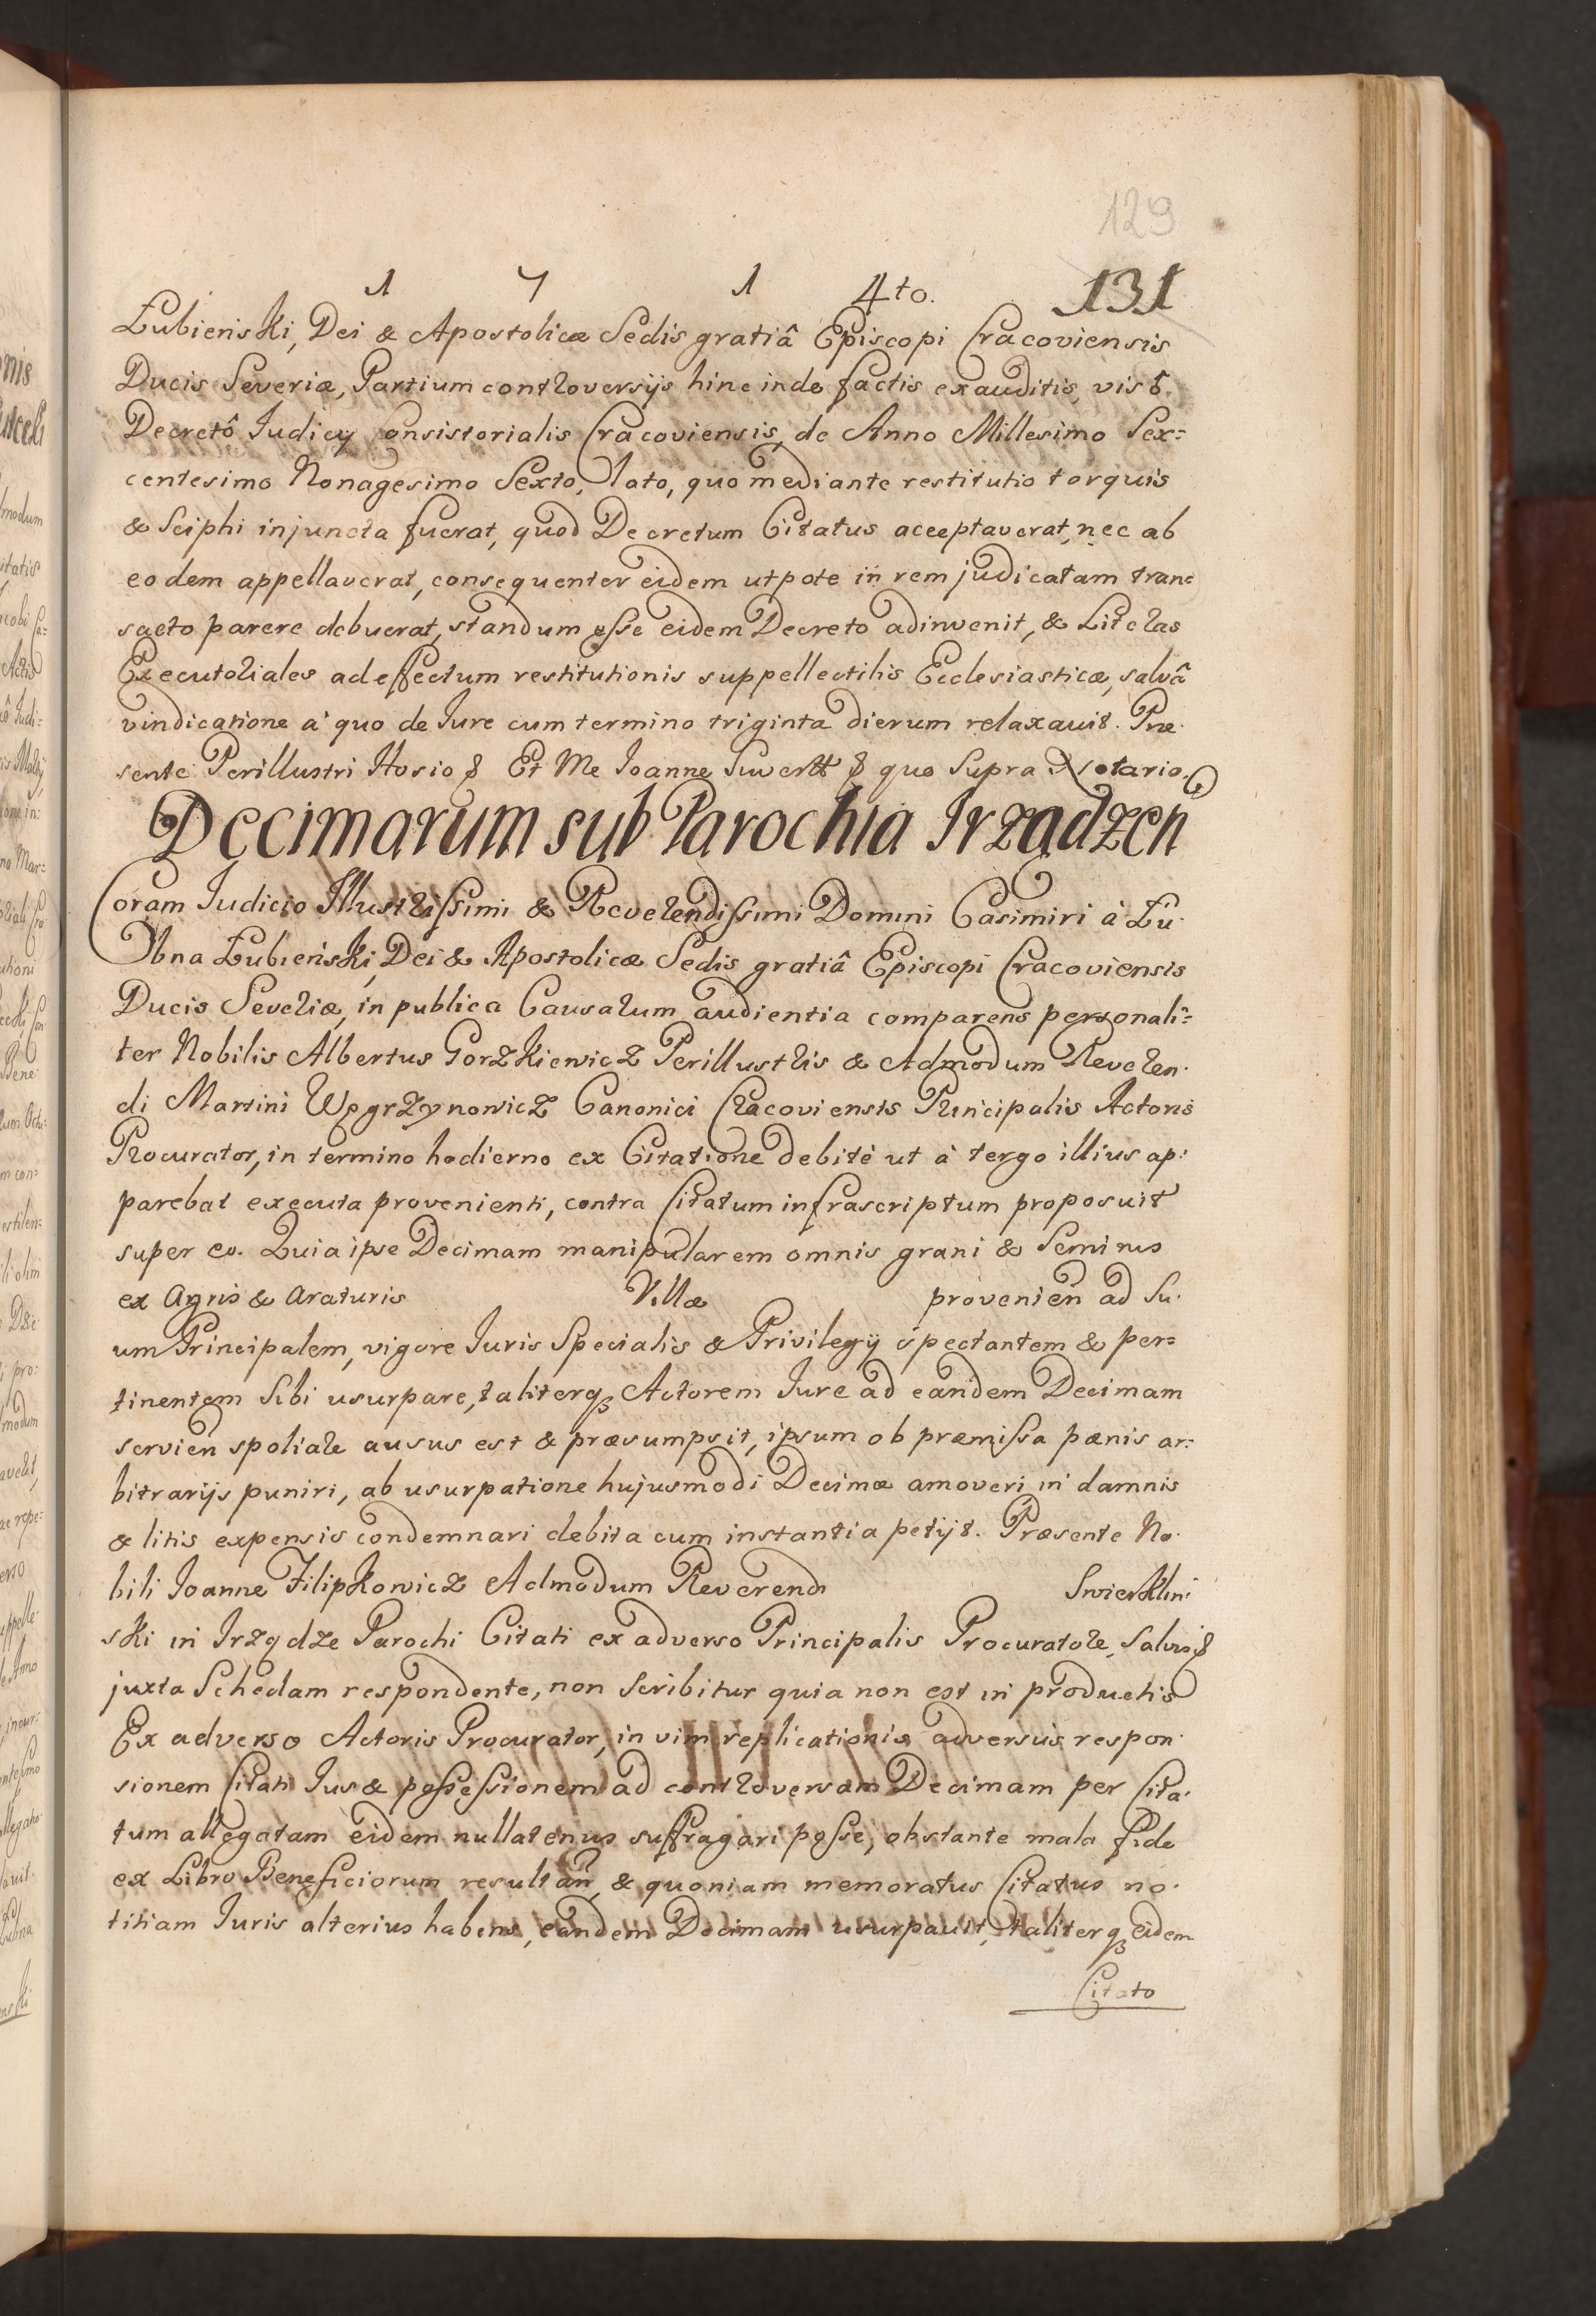 129
1 7 1 4to. 131
Łubieński, Dei & Apostolicæ Sedis gratiâ Episcopi Cracoviensis
Ducis Severiæ, Partium controversijs hinc inde factis exauditis, visô
Decretô Judicij Consistorialis Cracoviensis, de Anno Millesimo Sex=
centesimo Nonagesimo Sexto, lato, quo mediante restitutio torquis
& Sciphi injuncta fuerat, quod Decretum Citatus acceptaverat, nec ab
eodem appellaverat, consequenter eidem utpote in rem judicatam trans
sacto parere debuerat, standum esse eidem Decreto adinvenit, & Literas
Executoriales ad effectum restitutionis suppellectilis Ecclesiasticæ, salvâ
vindicatione à quo de Jure cum termino triginta dierum relaxavit. Præ
sente Perillustri Hosio & Et Me Joanne & quo Supra Notario.
Decimarum sub Parochia Irządzeń
Coram Judicio Illustrissimi & Reverendissimi Domini Casimiri à Łu
bna Łubieński, Dei & Apostolicæ Sedis gratiâ Episcopi Cracoviensis
Ducis Severiæ, in publica Causarum audientia comparens personali=
ter Nobilis Albertus Gorzkiewicz Perillustris & Admodum Reveren
di Martini Węgrzynowicz Canonici Cracoviensis Principalis Actoris
Procurator, in termino hodierno ex Citatione debitè ut à tergo illius ap:
parebat executa provenienti, contra Citatum infrascriptum proposuit
super eo. Quia ipse Decimam manipularem omnis grani & Seminis
ex Agris & Araturis Villæ provenień ad Su
um Principalem, vigore Juris Specialis & Privilegij spectantem & per=
tinentem Sibi usurpare, taliterq Actorem Jure ad eandem Decimam
servień spoliare ausus est & præsumpsit, ipsum ob præmissa pænis ar=
bitrarijs puniri, ab usurpatione hujusmodi Decimæ amoveri in damnis
& litis expensis condemnari debita cum instantia petijt. Præsente No
bili Joanne Filipkowicz Admodum Reverendi Swierklin
ski in Irządze Parochi Citati ex adverso Principalis Procuratore, Salvis &
juxta Schedam respondente, non scribitur quia non est in productis
Ex adverso Actoris Procurator, in vim replicationis adversus respon
sionem Citati Jus & possessionem ad controversam Decimam per Cita
tum allegatam eidem nullatenus suffragari posse, obstante mala fide
ex Libro Beneficiorum resultań, & quoniam memoratus Citatus no
titiam Juris alterius habens, eandem Decimam usurpavit, taliterq eidem
Citato